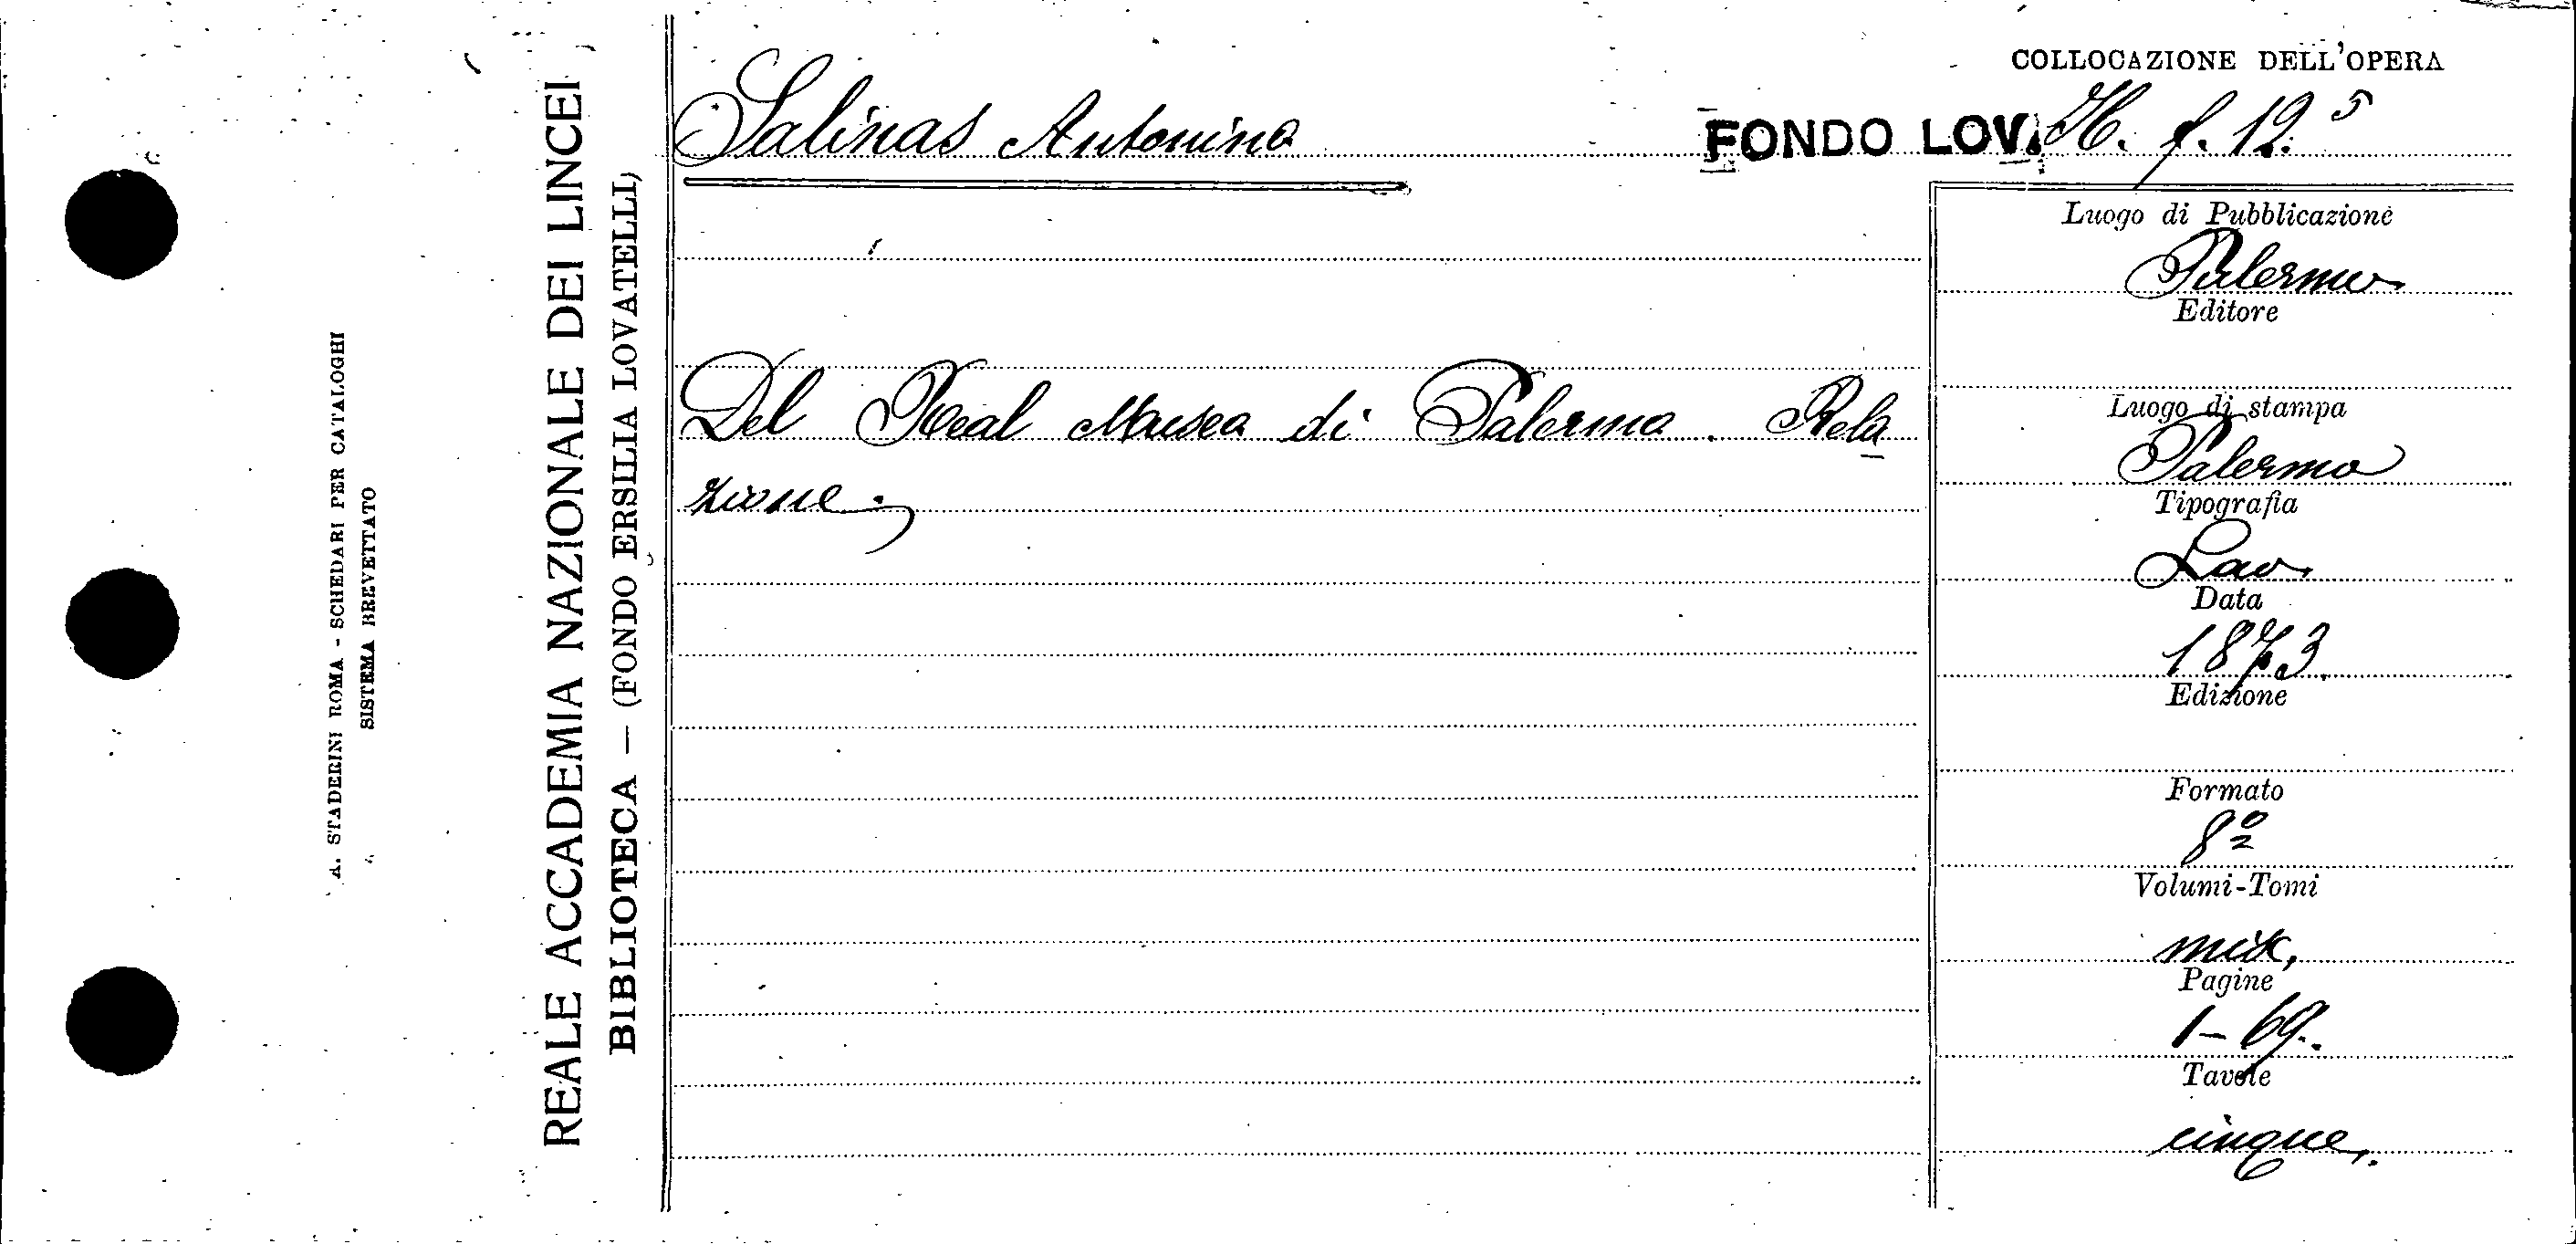 COLLOCAZIONE DELL'OPERA
Salinas Antonino
FONDO LOV. H. f. 12. 5
Del Real Museo di Palermo. Rela
zione.
Luogo di Pubblicazione
Palermo
Editore
Luogo di stampa
Palermo
Tipografia
Lao
Data
1873.
Edizione
Formato
8º
Volumi-Tomi
Pagine
1-69.
Tavole
cinque.
REALE ACCADEMIA NAZIONALE DEI LINCEI
BIBLIOTECA — (FONDO ERSILIA LOVATELLI)
A. STADERINI ROMA - SCHEDARI PER CATALOGHI
SISTEMA BREVETTATO